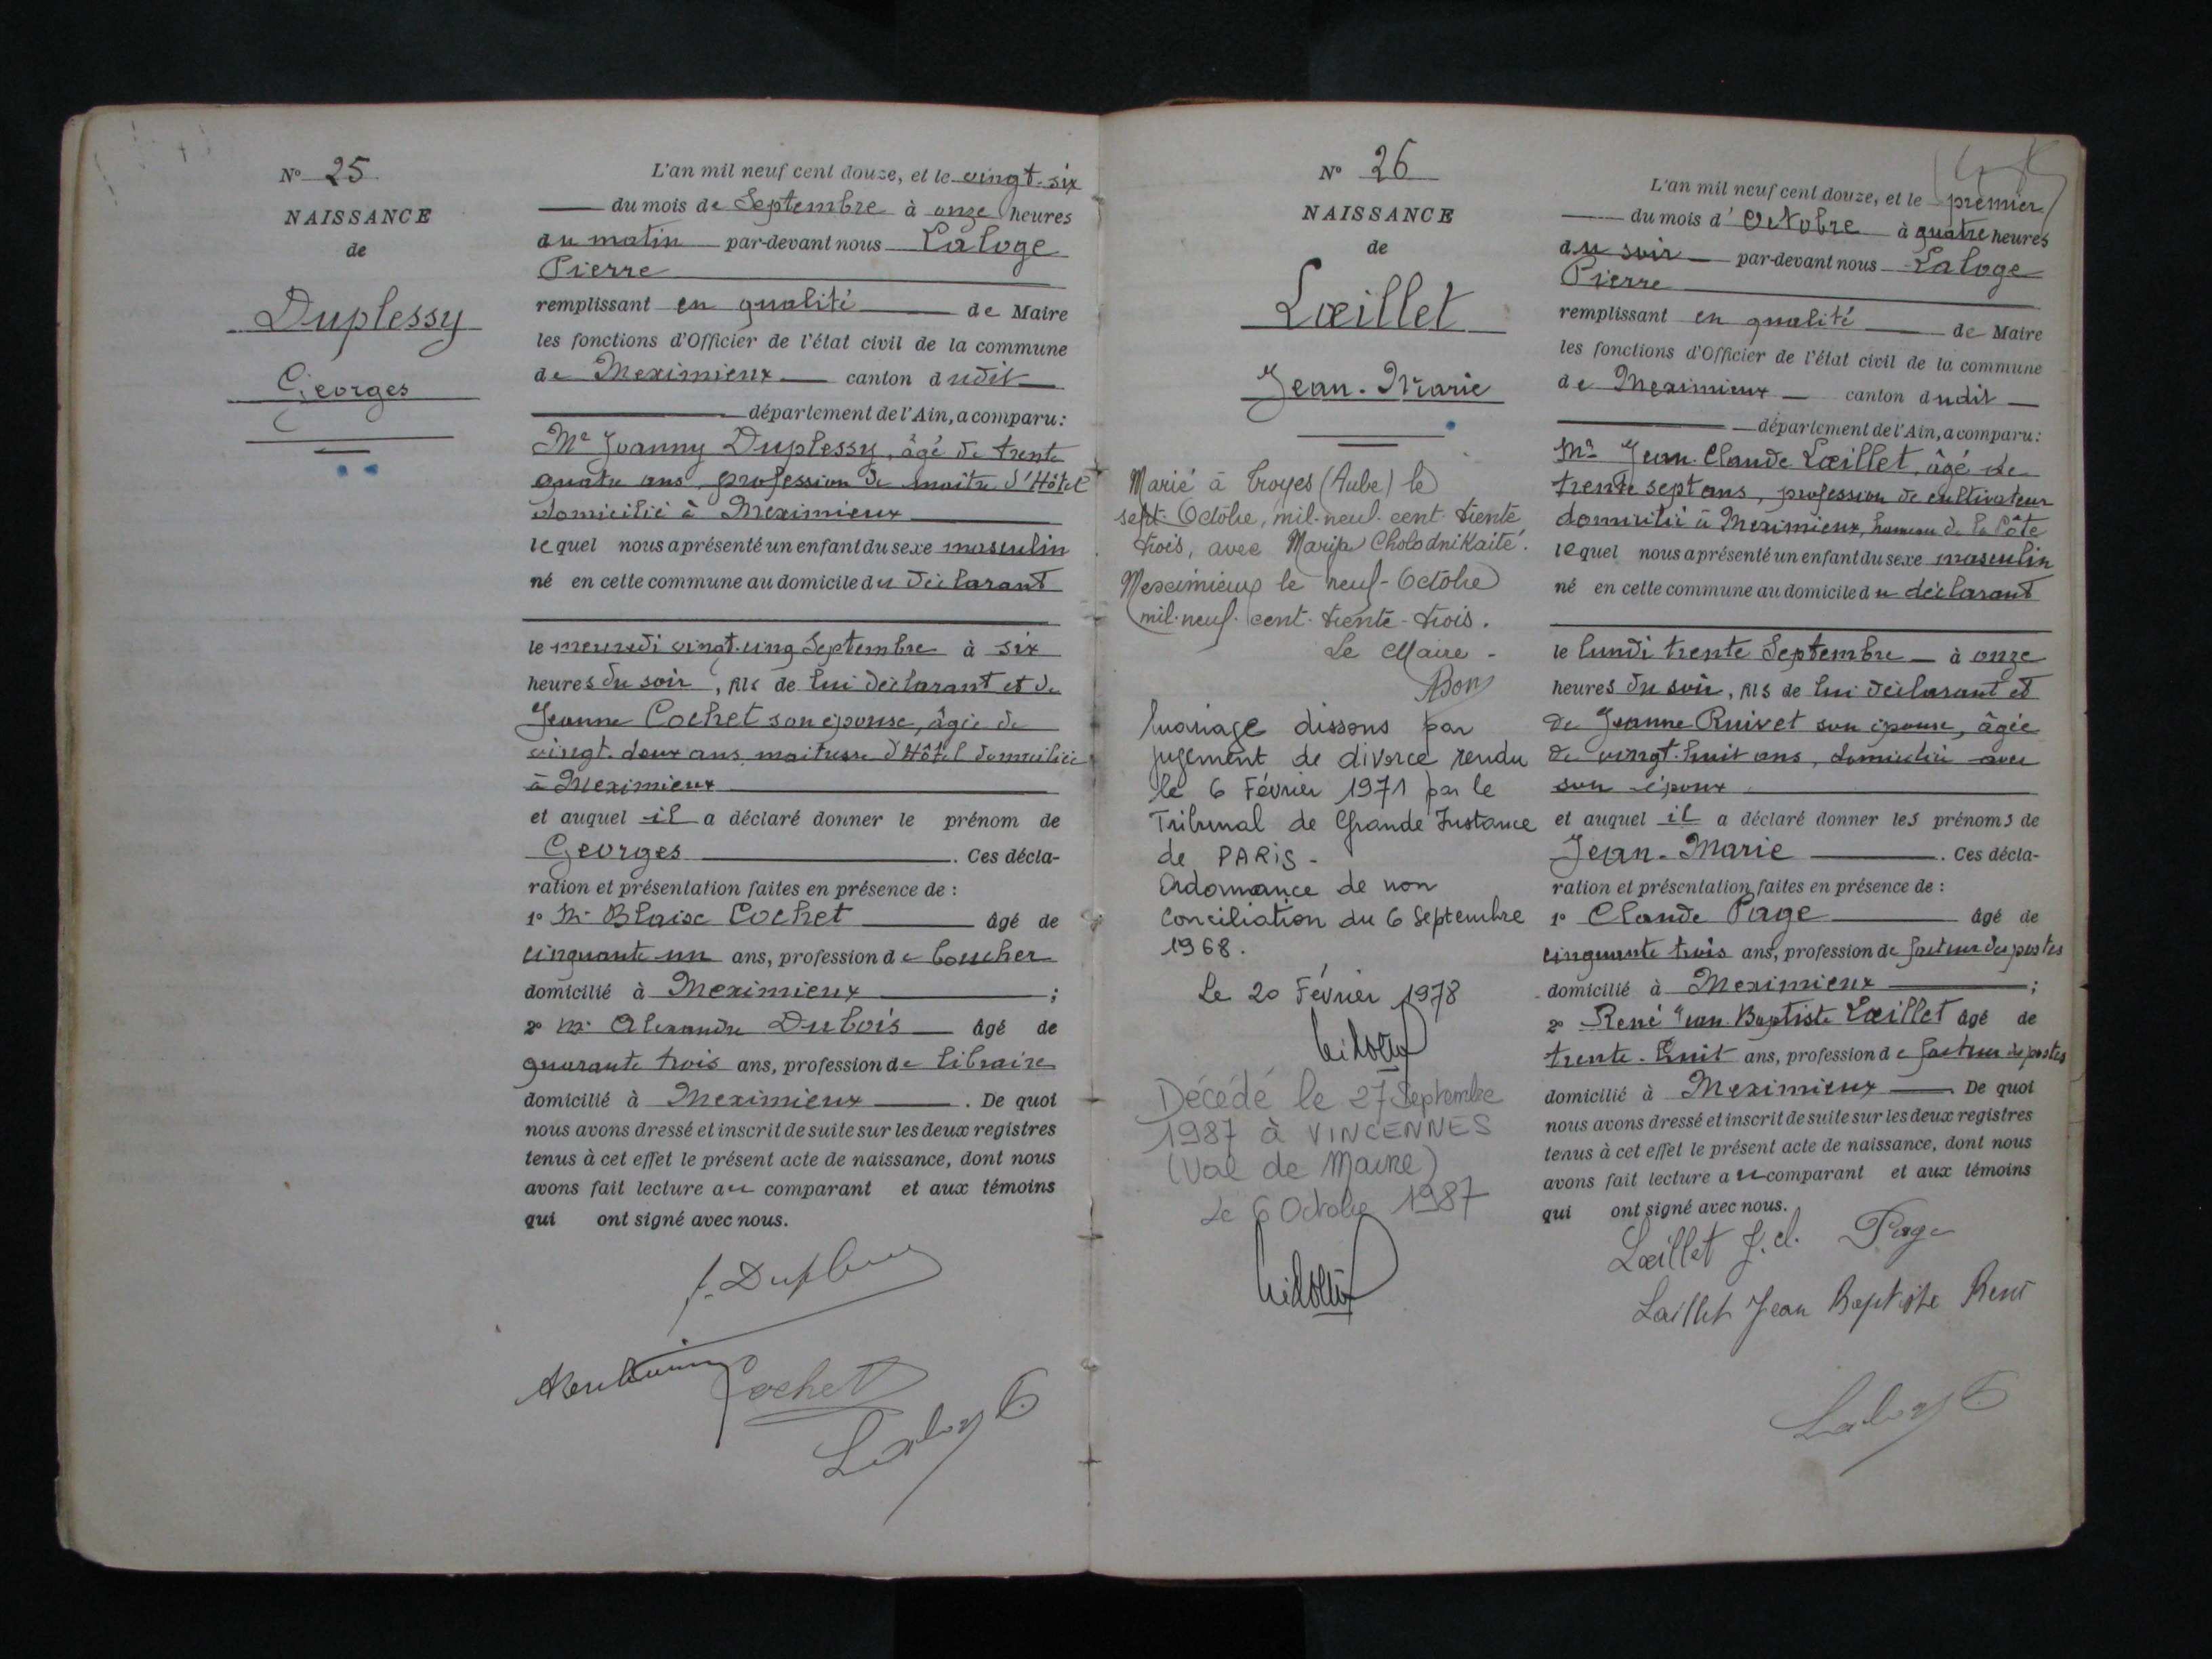 N° 25
NAISSANCE
de
Duplessy
Georges
L'an mil neuf cent douze, et le vingt-six
du mois de Septembre à onze heures
du matin par-devant nous Laloge
Pierre
remplissant en qualité de Maire
les fonctions d'Officier de l'état civil de la commune
de Meximieux canton dudit
département de l'Ain, a comparu :
Mr Joanny Duplessy, âgé de trente
quatre ans, profession de maître d'Hôtel
domicilié à Meximieux
lequel nous a présenté un enfant du sexe masculin
né en cette commune au domicile du déclarant
le mercredi vingt-cinq Septembre à six
heures du soir, fils de lui déclarant et de
Jeanne Cochet son épouse, âgée de
vingt-deux ans, maitresse d'Hôtel domiciliée
à Meximieux
et auquel il a déclaré donner le prénom de
Georges. Ces décla-
ration et présentation faites en présence de :
1° Mr Blaise Cochet âgé de
cinquante un ans, profession de boucher
domicilié à Meximieux ;
2° Mr Alexandre Dubois âgé de
quarante trois ans, profession de libraire
domicilié à Meximieux. De quoi
nous avons dressé et inscrit de suite sur les deux registres
tenus à cet effet le présent acte de naissance, dont nous
avons fait lecture au comparant et aux témoins
qui ont signé avec nous.
Cochet
N° 26
NAISSANCE
de
Lœillet
Jean-Marie
Marié à Troyes (Aube) le
sept-Octobre, mil-neuf-cent-trente
trois, avec Marija Cholodnikaité.
Meximieux le neuf-Octobre
mil-neuf-cent-trente-trois.
Le Maire -
Mariage dissous par
jugement de divorce rendu
le 6 Février 1971 par le
Tribunal de Grande Instance
de PARIS -
Ordonnance de non
conciliation du 6 Septembre
1968.
Le 20 Février 1978
Décédé le 27 Septembre
1987 à VINCENNES
(Val de Marne)
Le 6 Octobre 1987
L'an mil neuf cent douze, et le premier
du mois d'Octobre à quatre heures
du soir par-devant nous Laloge
Pierre
remplissant en qualité de Maire
les fonctions d'Officier de l'état civil de la commune
de Meximieux canton dudit
département de l'Ain, a comparu :
Mr Jean-Claude Lœillet, âgé de
trente sept ans, profession de cultivateur
domicilié à Meximieux, hameau de la Côte
lequel nous a présenté un enfant du sexe masculin
né en cette commune au domicile du déclarant
le lundi trente Septembre à onze
heures du soir, fils de lui déclarant et
de Jeanne Ruivet son épouse, âgée
de vingt-huit ans, domiciliée avec
son époux
et auquel il a déclaré donner les prénoms de
Jean-Marie. Ces décla-
ration et présentation faites en présence de :
1° Claude Page âgé de
cinquante trois ans, profession de facteur des postes
domicilié à Meximieux ;
2° René Jean-Baptiste Lœillet âgé de
trente-huit ans, profession de facteur des postes
domicilié à Meximieux De quoi
nous avons dressé et inscrit de suite sur les deux registres
tenus à cet effet le présent acte de naissance, dont nous
avons fait lecture au comparant et aux témoins
qui ont signé avec nous.
Lœillet J. Cl. Page
Lœillet Jean Baptiste René